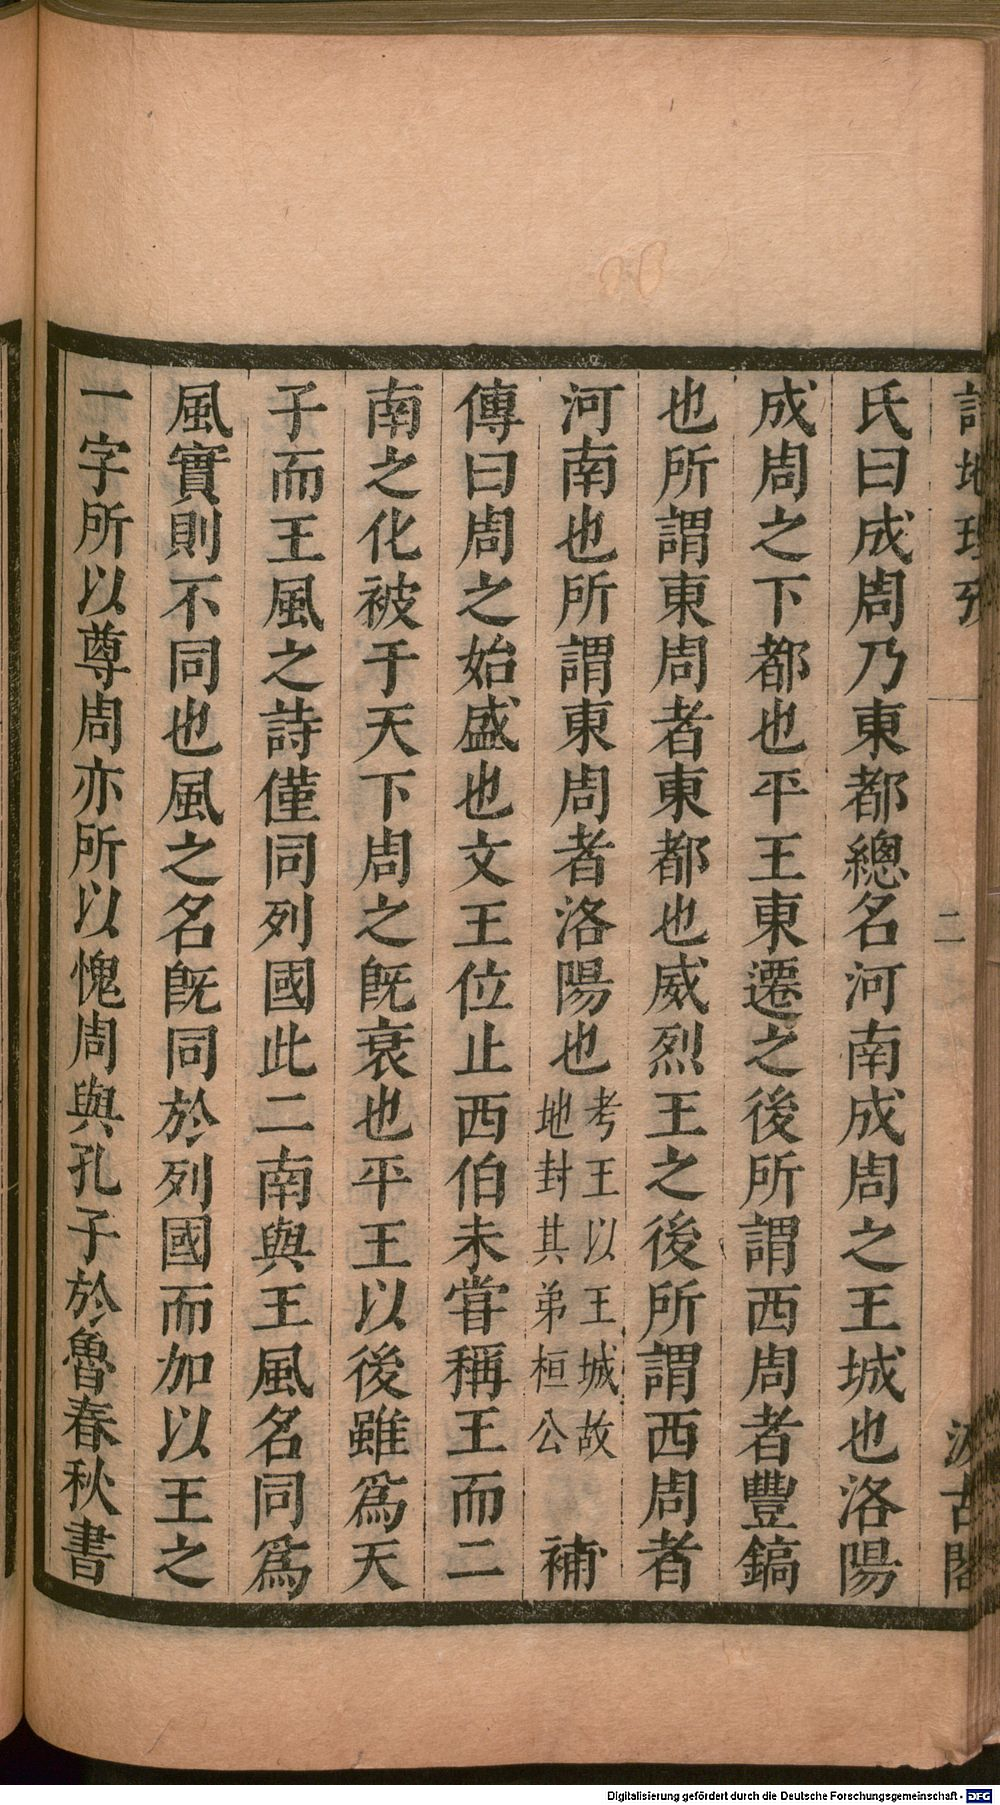 詩地理攷
二
汲古閣
氏曰成周乃東都總名河南成周之王城也洛陽
成周之下都也平王東遷之後所謂西周者豐鎬
也所謂東周者東都也威烈王之後所謂西周者
河南也所謂東周者洛陽也考王以王城故地封其弟桓公 補
傳曰周之始盛也文王位止西伯未嘗稱王而二
南之化被于天下周之旣衰也平王以後雖爲天
子而王風之詩僅同列國此二南與王風名同爲
風實則不同也風之名旣同於列國而加以王之
一字所以尊周亦所以愧周與孔子於魯春秋書
Digitalisierung gefördert durch die Deutsche Forschungsgemeinschaft - DFG